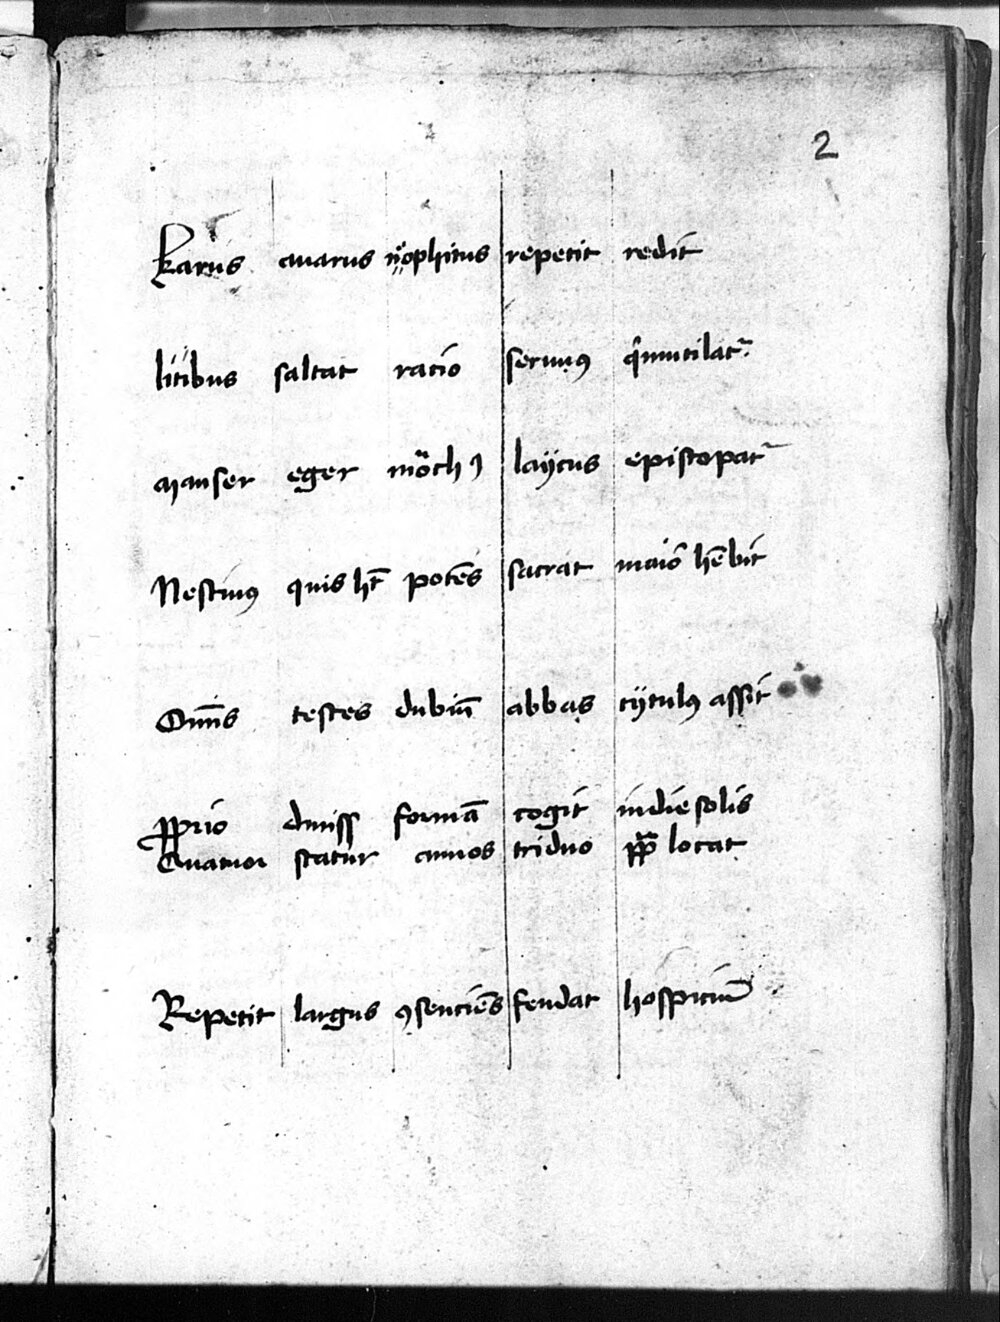 2
karus auarus neophitus repetit redit
litibus saltat racio seruus qmutilatr
Manser eger laycus epistopatr
Nestius quis ht potens sacrat maio hebit
Omnis testes dubiu abbas tytulus assit
dmiss forma cogit in die solis
Quatuor statur annos triduo locat
Repetit largus ꝯsenciens fendat hospiciu